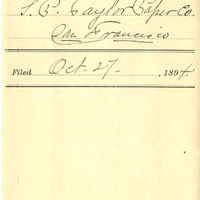 S. P. Taylor Paper Co.
San Francisco
Filed Oct. 27 , 1894